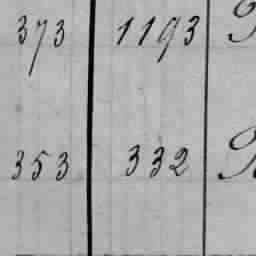 373 1193
353 332